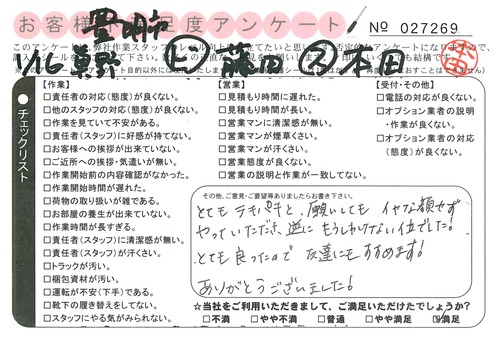 お客様満足度アンケート
豊明市
No 027269
V16
藤田
本田
チェックリスト
【作業】
□責任者の対応(態度)が良くない。
□他のスタッフの対応(態度)が良くない。
□作業を見ていて不安がある。
□責任者(スタッフ)に好感が持てない。
□お客様への挨拶が出来ていない。
□ご近所への挨拶・気遣いが無い。
□作業開始前の内容確認がなかった。
□作業開始時間が遅れた。
□荷物の取り扱いが雑である。
□お部屋の養生が出来ていない。
□作業時間が長すぎる。
□責任者(スタッフ)に清潔感が無い。
□責任者(スタッフ)が汗くさい。
□トラックが汚い。
□梱包資材が汚い。
□運転が不安(下手)である。
□靴下の履き替えをしてない。
□スタッフにやる気がみられない。
【営業】
□見積もり時間に遅れた。
□見積もり時間が長い。
□営業マンに清潔感が無い。
□営業マンが煙草くさい。
□営業マンが汗くさい。
□営業態度が良くない。
□営業の説明と作業が一致してない。
【受付・その他】
□電話の対応が良くない。
□オプション業者の説明
・作業が良くない。
□オプション業者の対応
(態度)が良くない。
その他、ご意見・ご要望等ありましたらお書き下さい。
とても テキパキと、願いしても イヤな顔せず
やっていただき、逆に もうしわけない位でした!
とても良ったので 友達にもすすめます!
ありがとうございました!
☆当社をご利用いただきまして、ご満足いただけたでしょうか?
□不満 □やや不満 □普通 □やや満足 ☑満足